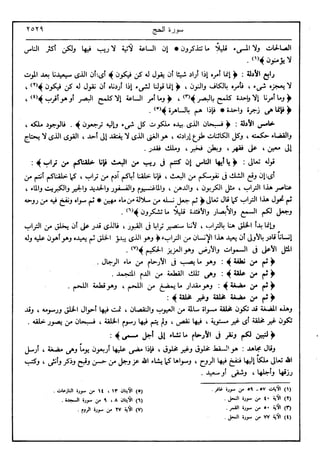 سورة الحج
٢٥٢٩
الصالحات ولا المسيء قليلاً ما تتذكرون * إن الساعة لآتية لا ريب فيها ولكن أكثر الناس
لا يؤمنون ﴾(١) .
رابع الأدلة : ﴿ إنما أمره إذا أراد شيئاً أن يقول له كن فيكون ﴾ أي: أن الذي سيعيدنا بعد الموت
لا يعجزه شيء ، فأمره بالكاف والنون ، ﴿ إنما قولنا لشيء إذا أردناه أن نقول له كن فيكون ﴾(٢) ،
﴿ وما أمرنا إلا واحدة كلمح بالبصر ﴾(٣) ، ﴿ وما أمر الساعة إلا كلمح البصر أو هو أقرب ﴾(٤) ،
﴿ فإنما هي زجرة واحدة * فإذا هم بالساهرة ﴾(٥) .
خامس الأدلة : ﴿ فسبحان الذي بيده ملكوت كل شيء وإليه ترجعون ﴾ . فالوجود ملكه ،
والقضاء حكمه ، وكل الكائنات طوع إرادته ، هو الغني الذي لا يفتقد إلى أحد ، القوى الذي لا يحتاج
إلى معين ، على فقهر ، وبطن فخبر ، وملك فقدر .
قوله تعالى : ﴿ يا أيها الناس إن كنتم في ريب من البعث فإنا خلقناكم من تراب ﴾ :
أي: إن وقع الشك في نفوسكم من البعث ، فإنا خلقنا أباكم آدم من تراب ، كما خلقناكم أنتم من
عناصر هذا التراب ، مثل الكربون ، والدهن ، والماغنسيوم والفسفور والحديد والجير والكبريت والماء ،
ثم تحول هذا التراب كما قال تعالى ﴿ ثم جعل نسله من سلالة من ماء مهين * ثم سواه ونفخ فيه من روحه
وجعل لكم السمع والأبصار والأفئدة قليلاً ما تشكرون ﴾(٦) .
وإنما بدأ الخلق هنا بالتراب ، لأننا سنصير تراباً في القبور ، فالذي قدر على أن يخلق من التراب
إنساناً قادر بالأولى أن يعيد هذا الإنسان من التراب ﴿ وهو الذي يبدؤ الخلق ثم يعيده وهو أهون عليه وله
المثل الأعلى في السموات والأرض وهو العزيز الحكيم ﴾(٧) .
﴿ ثم من نطفة ﴾ : وهو ما يصب في الأرحام من ماء الرجال .
﴿ ثم من علقة ﴾ : وهي تلك القطعة من الدم المتجمد .
﴿ ثم من مضغة ﴾ : وهو مقدار ما يمضغ من اللحم ، وهو قطعة اللحم .
﴿ ثم من مضغة مخلقة وغير مخلقة ﴾ :
وهذه المضغة قد تكون مخلقة مسواة سالمة من العيوب والنقصان ، تمت فيها أحوال الخلق ورسومه ، وقد
تكون غير مخلقة أي غير مستوية ، فيها نقص ، ولم يتم فيها رسوم الخلقة ، فسبحان من يصور خلقه .
﴿ لنبين لكم ونقر في الأرحام ما نشاء إلى أجل مسمى ﴾ :
وقال مجاهد : هو السقط مخلوق وغير مخلوق ، فإذا مضى عليها أربعون يوماً وهي مضغة ، أرسل
الله تعالى ملكاً إليها فنفخ فيها الروح ، وسواها كما يشاء الله عز وجل من حسن وقبح وذكر وأنثى ، وكتب
رزقها وأجلها ، وشقي أو سعيد .
(١) الآيات ٥٧ ــ ٥٩ من سورة غافر .
(٢) الآية ٤٠ من سورة النحل .
(٣) الآية ٥٠ من سورة القمر .
(٤) الآية ٧٧ من سورة النحل .
(٥) الآيتان ١٣ ، ١٤ من سورة النازعات .
(٦) الآيتان ٨ ، ٩ من سورة السجدة .
(٧) الآية ٢٧ من سورة الروم .